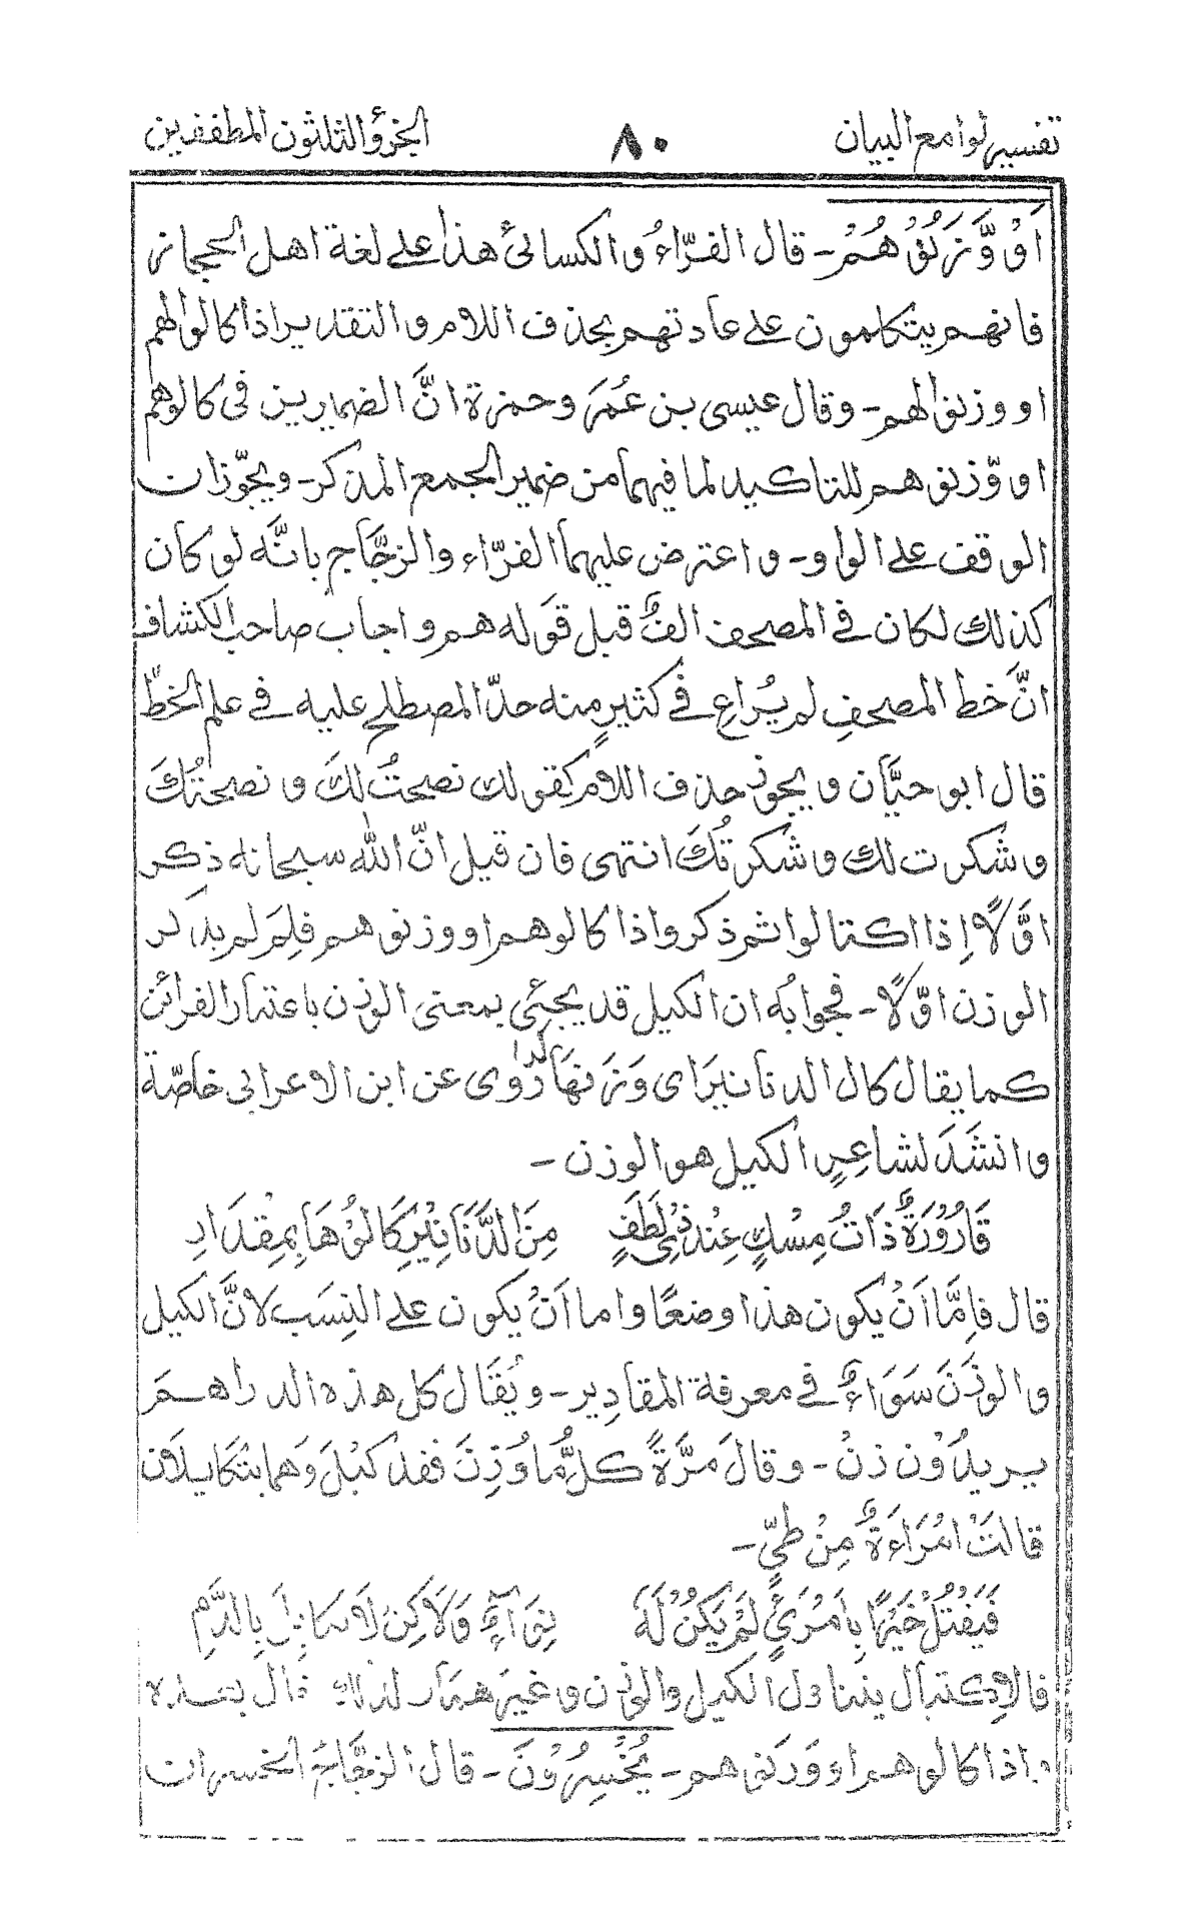 تفسير لوامع البيان ٨٠ الجزؤ الثلثون المطففين
اَوْ وَّزَنُوْهُمْ - قال الفرّاءُ والكسائىُ هذا على لغة اهل الحجاز
فانهم يتكلمون على عادتهم بحذف اللام والتقدير اذا كالوا لهم
او وزنوا لهم - وقال عيسى بن عُمَرَ وحمزة انَّ الضميرين فى كالوهم
او وّزنوهم للتاكيد لما فيهما من ضمير الجمع المذكر - ويجوّزان
الوقف على الواو - واعترض عليهما الفرّاء والزجَّاج بانَّه لو كان
كذلك لكان فى المصحف الفٌ قبل قَوله هم واجاب صاحب الكشاف
انَّ خط المصحفِ لم يُراعِ فى كثيرٍ منه حدّ المصطلح عليه فى علم الخطّ
قال ابو حيَّان ويجوز حذف اللام كقولك نصحتُ لكَ ونصحتُكَ
وشكرت لك وشكرتُكَ انتهى فان قيل انّ الله سبحانه ذكر
اوَّلًا اِذا اكتالوا ثم ذكر واذا كالوهم او وزنوهم فلِمَ لم يذكر
الوزن اوّلًا - فجوابُه ان الكيل قد يجئى بمعنى الوزن باعتبار القرائن
كما يقال كال الدنانيرَ اى وَزَنَهَا كذا رَوى عن ابن الاعرابى خاصّة
وانشَدَ لشاعرٍ الكيل هو الوزن -
قَارُوْرَةٌ ذَاتُ مِسْكٍ عِنْدَ ذِىْ لَطَفٍ مِنَ الدَّنَانِيْرِ كَالُوْهَا بِمِقْدَادِ
قال فاِمَّا اَنْ يكون هذا وضعًا واما اَنْ يكون على النِسَب لانَّ الكيل
والوزَنَ سَوَاءٌ فى معرفة المقادِير - ويُقَال كل هذه الدراهمَ
يريدُوْن زنْ - وقالَ مرَّةً كلُّ مُا وُزِنَ فقد كيْلَ وَهما يتكايلان
قالتْ امْرَاَءةٌ مِنْ طىٍّ -
فَيَقْتُلْ خَيْرًا بِامْرَئٍ لَمْ يَكُنْ لَهٗ نِوَاءٌ وَلَاكِنْ لَا تَكَايُلَ بِالدَّمِ
فالاِكتيال يتناول الكيل والوزن وغيرَهما لذلك قال بعده
واذا كالوهم او وزنوهم - يُخْسِرُوْنَ - قال الزجَّاجُ اخسرت